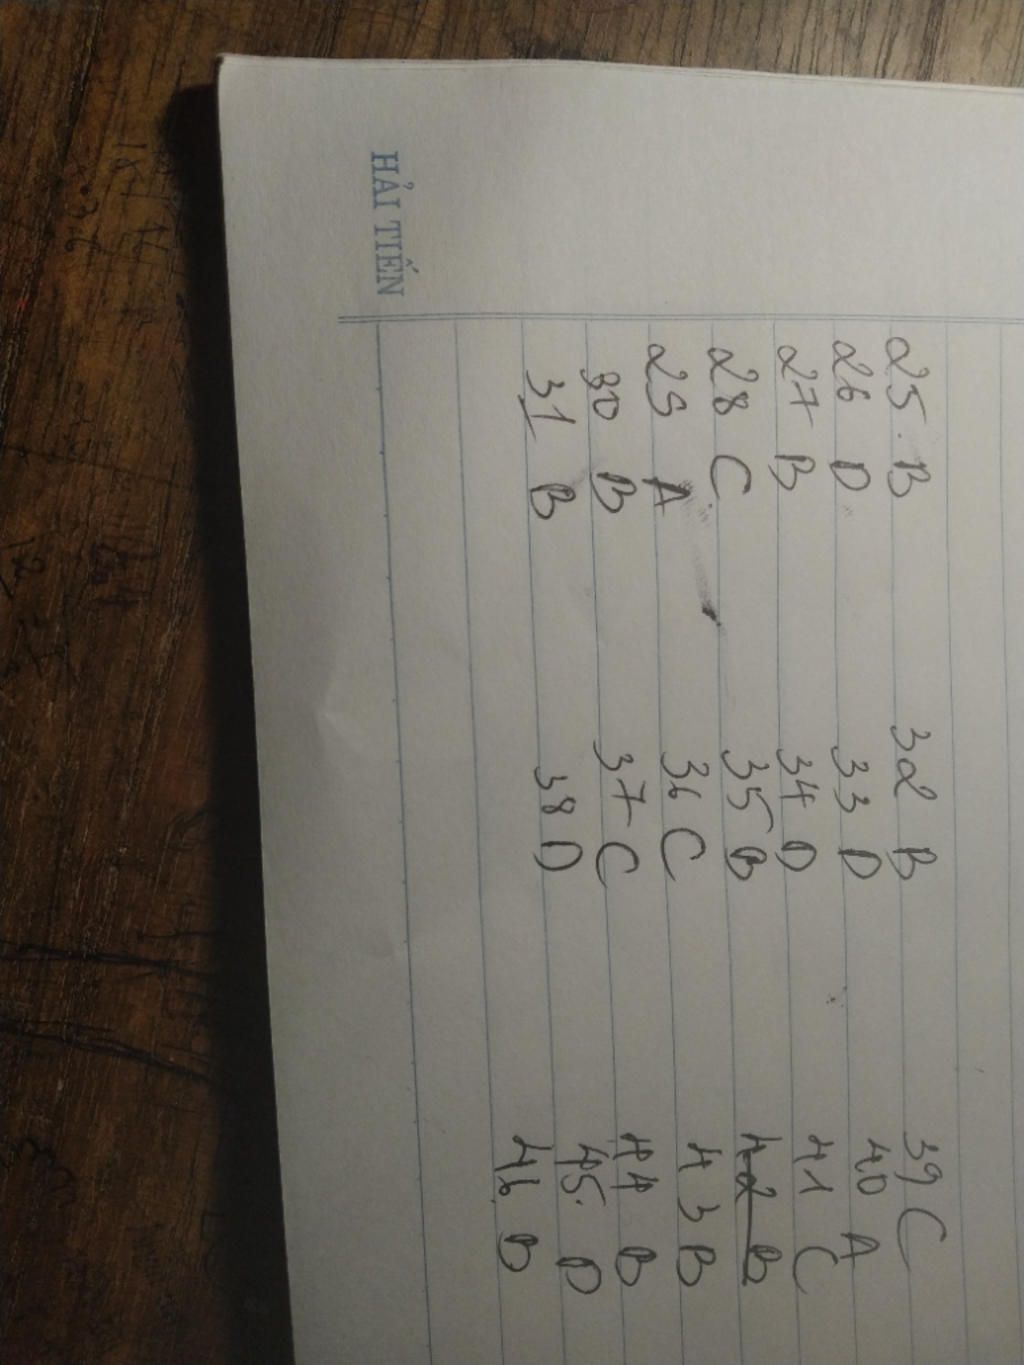 HẢI TIẾN
25. B
26 D
27 B
28 C
29 A
30 B
31 B
32 B
33 D
34 D
35 B
36 C
37 C
38 D
39 C
40 A
41 C
42 B
43 B
44 B
45. D
46. B